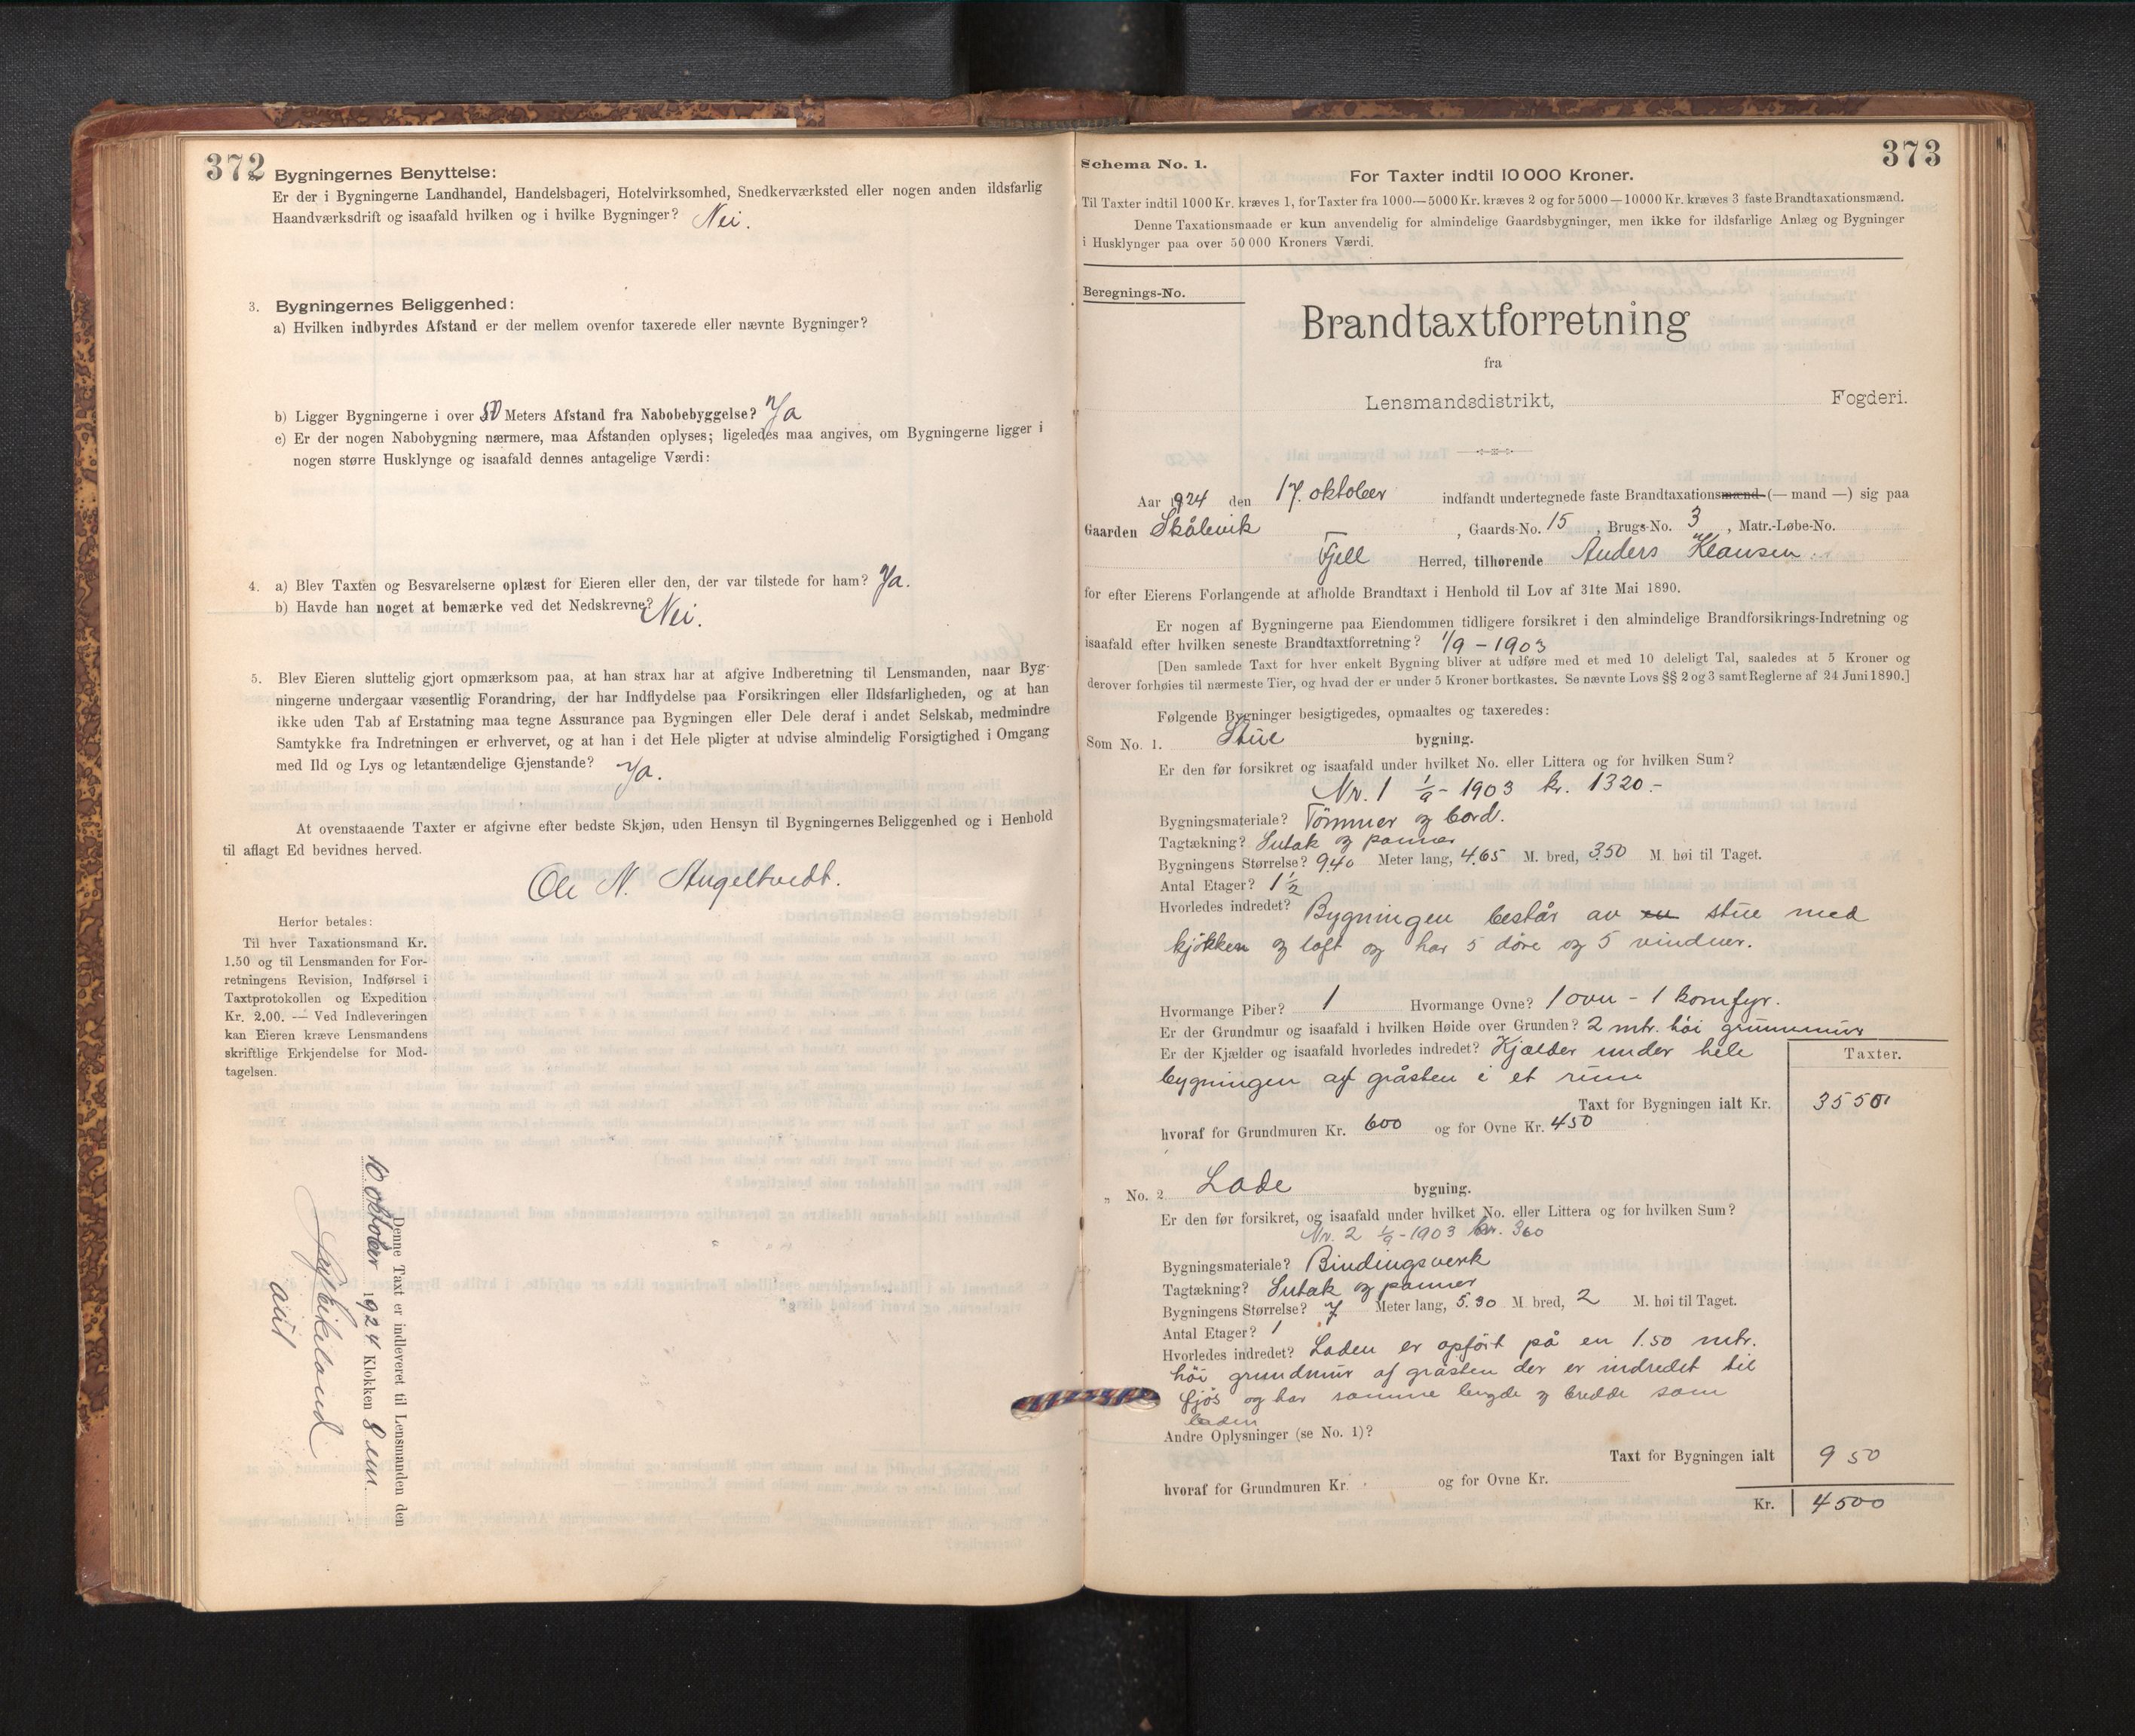 372
Bygningernes Benyttelse:
Er der i Bygningerne Landhandel, Handelsbageri, Hotelvirksomhed, Snedkerværksted eller nogen anden ildsfarlig
Haandværksdrift og isaafald hvilken og i hvilke Bygninger? Nei.
3. Bygningernes Beliggenhed:
a) Hvilken indbyrdes Afstand er der mellem ovenfor taxerede eller nævnte Bygninger?
b) Ligger Bygningerne i over 50 Meters Afstand fra Nabobebyggelse? Ja
c) Er der nogen Nabobygning nærmere, maa Afstanden oplyses; ligeledes maa angives, om Bygningerne ligger i
nogen større Husklynge og isaafald dennes antagelige Værdi:
4. a) Blev Taxten og Besvarelserne oplæst for Eieren eller den, der var tilstede for ham? Ja.
b) Havde han noget at bemærke ved det Nedskrevne? Nei.
5. Blev Eieren sluttelig gjort opmærksom paa, at han strax har at afgive Indberetning til Lensmanden, naar Byg-
ningerne undergaar væsentlig Forandring, der har Indflydelse paa Forsikringen eller Ildsfarligheden, og at han
ikke uden Tab af Erstatning maa tegne Assurance paa Bygningen eller Dele deraf i andet Selskab, medmindre
Samtykke fra Indretningen er erhvervet, og at han i det Hele pligter at udvise almindelig Forsigtighed i Omgang
med Ild og Lys og letantændelige Gjenstande? Ja.
At ovenstaaende Taxter er afgivne efter bedste Skjøn, uden Hensyn til Bygningernes Beliggenhed og i Henhold
til aflagt Ed bevidnes herved.
Ole N. Angeltvedt.
Herfor betales:
Til hver Taxationsmand Kr.
1.50 og til Lensmanden for For-
retningens Revision, Indførsel i
Taxtprotokollen og Expedition
Kr. 2.00. — Ved Indleveringen
kan Eieren kræve Lensmandens
skriftlige Erkjendelse for Mod-
tagelsen.
Denne Taxt er indleveret til Lensmanden den
10 oktober 1924 Klokken 8 em.
373
Schema No. 1.
For Taxter indtil 10 000 Kroner.
Til Taxter indtil 1000 Kr. kræves 1, for Taxter fra 1000—5000 Kr. kræves 2 og for 5000—10000 Kr. kræves 3 faste Brandtaxationsmænd.
Denne Taxationsmaade er kun anvendelig for almindelige Gaardsbygninger, men ikke for ildsfarlige Anlæg og Bygninger
i Husklynger paa over 50 000 Kroners Værdi.
Beregnings-No.
Brandtaxtforretning
fra
Lensmandsdistrikt, Fogderi.
Aar 1924 den 17. oktober indfandt undertegnede faste Brandtaxationsmænd (— mand —) sig paa
Gaarden Skålevik, Gaards-No. 15, Brugs-No. 3, Matr.-Løbe-No.
Fjell Herred, tilhørende Anders Klausen
for efter Eierens Forlangende at afholde Brandtaxt i Henhold til Lov af 31te Mai 1890.
Er nogen af Bygningerne paa Eiendommen tidligere forsikret i den almindelige Brandforsikrings-Indretning og
isaafald efter hvilken seneste Brandtaxtforretning? 1/9 - 1903
[Den samlede Taxt for hver enkelt Bygning bliver at udføre med et med 10 deleligt Tal, saaledes at 5 Kroner og
derover forhøies til nærmeste Tier, og hvad der er under 5 Kroner bortkastes. Se nævnte Lovs §§ 2 og 3 samt Reglerne af 24 Juni 1890.]
Følgende Bygninger besigtigedes, opmaaltes og taxeredes:
Som No. 1. Stue bygning.
Er den før forsikret og isaafald under hvilket No. eller Littera og for hvilken Sum?
Nr. 1 1/9 - 1903 kr. 1320.-
Bygningsmateriale? Tømmer og bord.
Tagtækning? Sutak og panner
Bygningens Størrelse? 9.40 Meter lang, 4.65 M. bred, 3.50 M. høi til Taget.
Antal Etager? 1 1/2
Hvorledes indredet? Bygningen består av en stue med
kjøkken og loft og har 5 døre og 5 vinduer.
Hvormange Piber? 1 Hvormange Ovne? 1 ovn - 1 komfyr.
Er der Grundmur og isaafald i hvilken Høide over Grunden? 2 mtr. høi grunnmur
Er der Kjælder og isaafald hvorledes indredet? Kjælder under hele
bygningen af gråsten i et rum
Taxter.
Taxt for Bygningen ialt Kr. 3550
hvoraf for Grundmuren Kr. 600 og for Ovne Kr. 450
„ No. 2 Lade bygning.
Er den før forsikret, og isaafald under hvilket No. eller Littera og for hvilken Sum?
Nr. 2 1/9 - 1903 kr. 360
Bygningsmateriale? Bindingsverk
Tagtækning? Sutak og panner
Bygningens Størrelse? 7 Meter lang, 5.30 M. bred, 2 M. høi til Taget.
Antal Etager? 1
Hvorledes indredet? Laden er opført på en 1.50 mtr.
høi grundmur af gråsten der er indredet til
fjøs og har samme lengde og bredde som
laden
Andre Oplysninger (se No. 1)?
Taxt for Bygningen ialt 950
hvoraf for Grundmuren Kr. og for Ovne Kr.
Kr. 4500